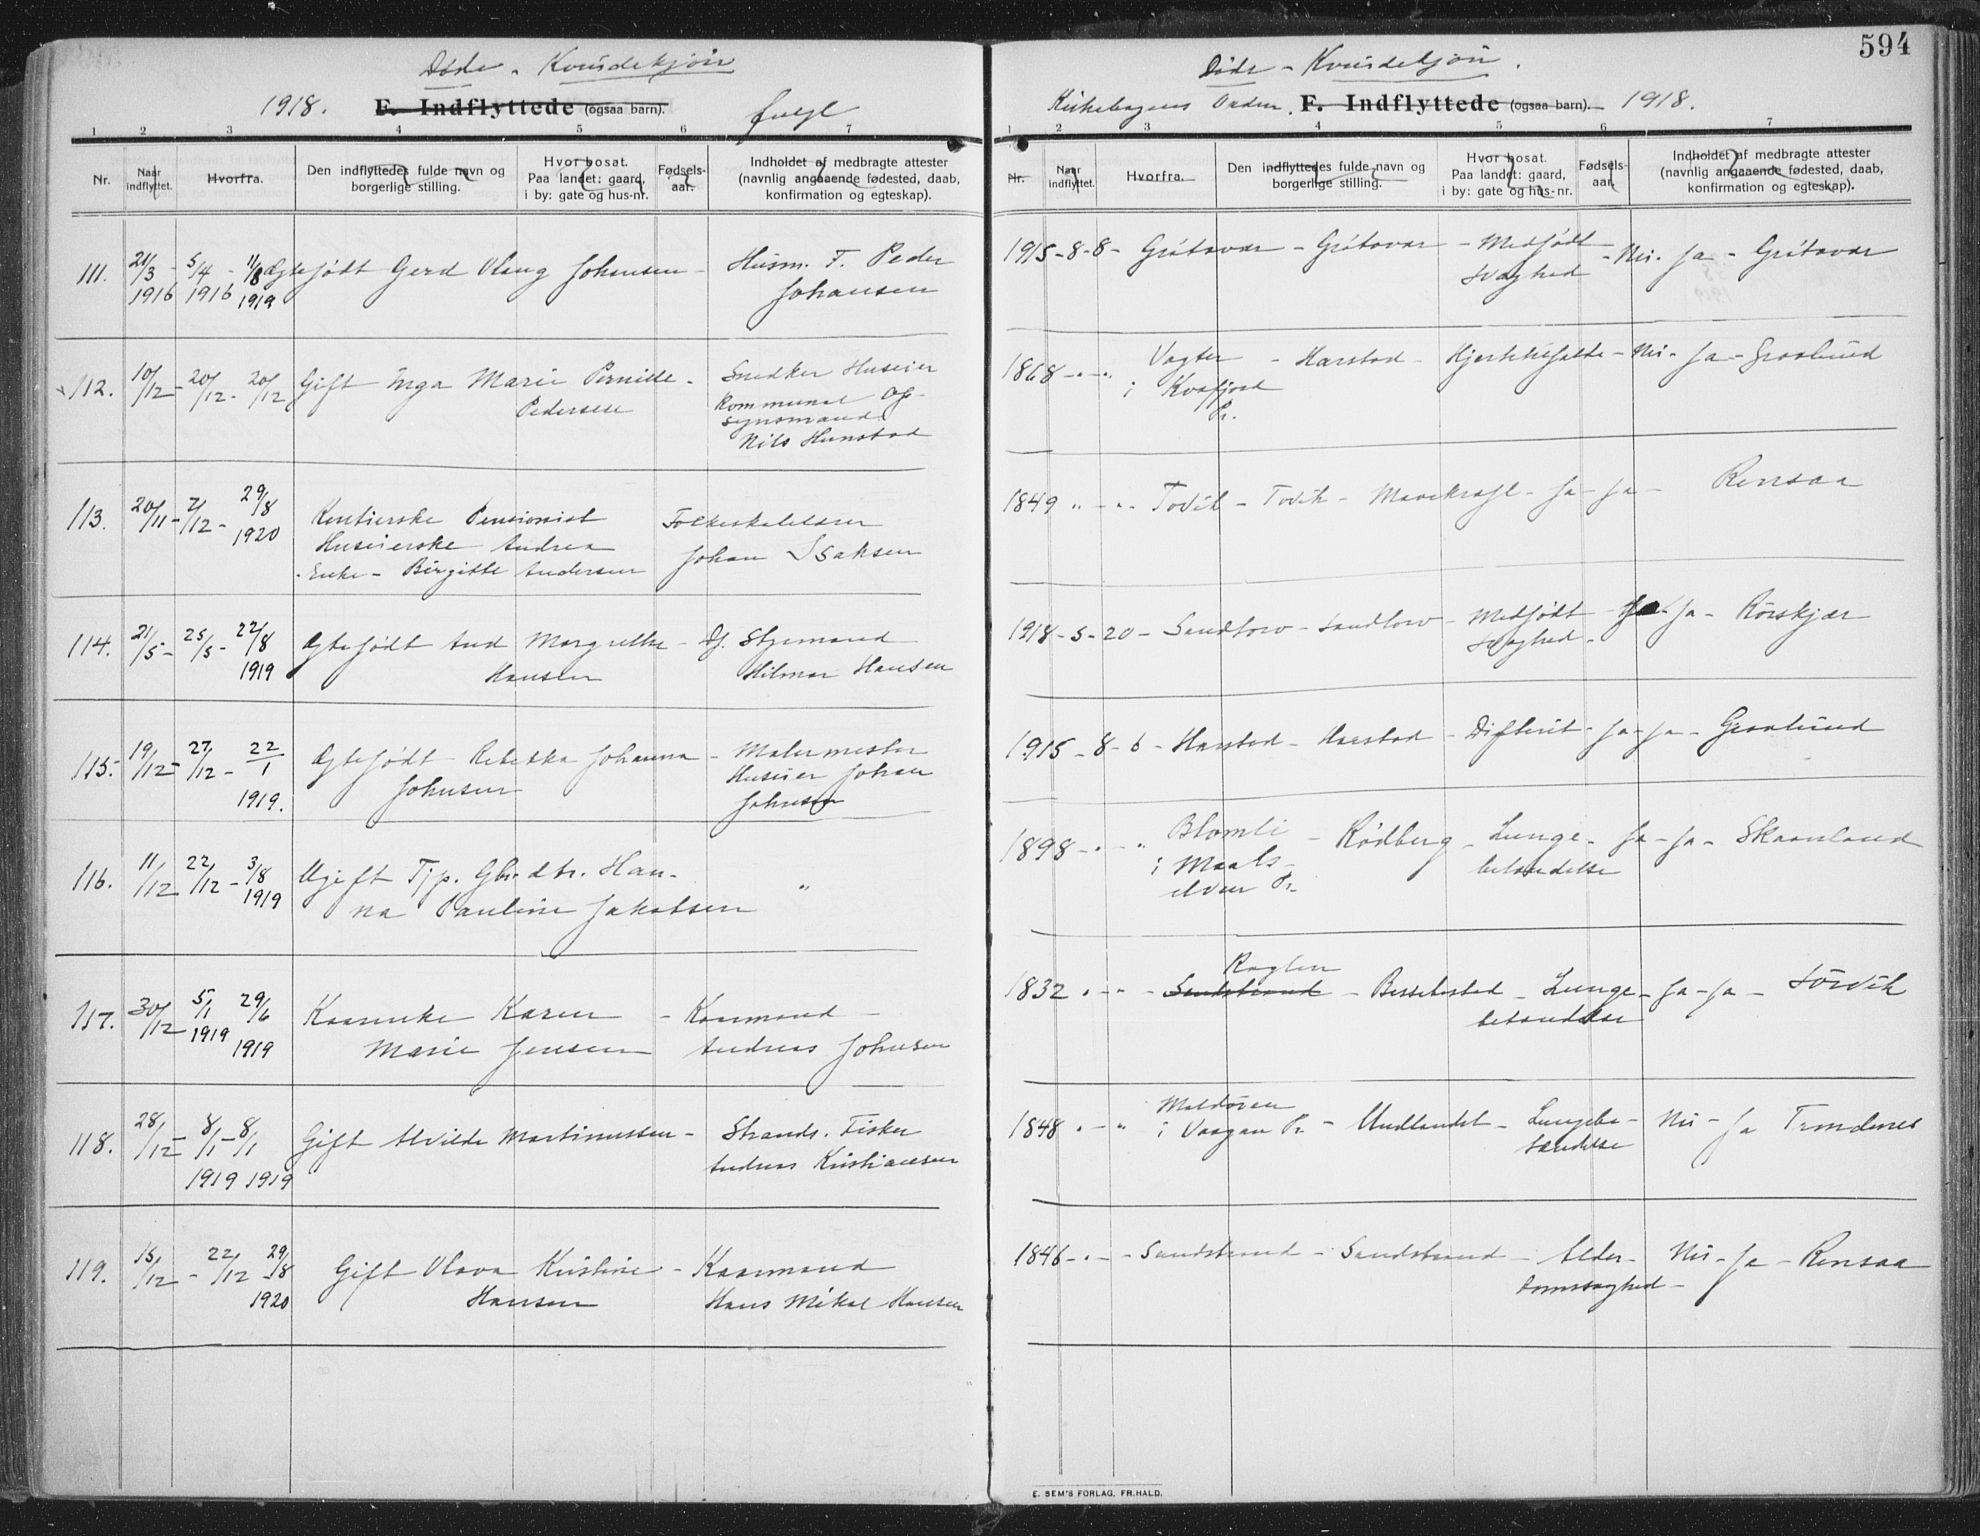 594
Døde - Kvindekjøn
1918. E. Indflyttede (ogsaa barn).
1 2 3 4 5 6 7
Nr.
Naar indflyttet.
Hvorfra.
Den indflyttedes fulde navn og borgerlige stilling.
Hvor bosat. Paa landet: gaard, i by: gate og hus-nr.
Fødsels-aar.
Indholdet af medbragte attester (navnlig angaaende fødested, daab, konfirmation og egteskap).
111. 21/3 1916 - 5/4 1916 - 11/8 1919 Ægtefødt Gerd Olaug Johansen - Husm. F. Peder
Johansen
112. 10/12 - 20/12 - 20/12 Gift Inga Marie Pernille - Snedker Huseier
Pedersen kommunal Op-
synsmand
Nils Hunstad
113. 20/11 - 2/12 - 29/8 1920 Rentierske Pensionist Folkeskolelærer
Huseierske Andrea Johan Isaksen
Enke - Birgitte Andersen
114. 21/5 - 25/5 - 22/8 1919 Ægtefødt Aud Margrethe - Styrmand
Hansen Hilmar Hansen
115. 19/12 - 27/12 - 22/1 1919. Ægtefødt Rebekka Johanna - Malermester
Johnsen Huseier Johan
Johnsen
116. 11/12 22/12 - 3/8 1919 Ugift Tjp. Gbr.dtr. Han-
na Pauline Jakobsen "
117. 30/12 5/1 1919 29/6 1919 Kaarenke Karen - Kaarmand -
Marie Jensen Andreas Johnsen
118. 28/12 - 8/1 1919 - 8/1 1919 Gift Alvilde Martinussen - Strands. Fisker
Andreas Kristiansen
119. 15/12 - 22/12 29/8 1920 Gift Olava Kristine - Kaarmand
Hansen Hans Mikal Hansen
Døde - Kvindekjøn.
Kirkebogens Orden. F. Indflyttede (ogsaa barn). 1918.
1 2 3 4 5 6 7
Nr.
Naar indflyttet.
Hvorfra.
Den indflyttedes fulde navn og borgerlige stilling.
Hvor bosat. Paa landet: gaard, i by: gate og hus-nr.
Fødsels-aar.
Indholdet af medbragte attester (navnlig angaaende fødested, daab, konfirmation og egteskap).
1915-8-8 - Grötavær - Grötavær - Medfødt - Nei - Ja - Grötavær
Svaghed
1868 - " - " Vagter - Harstad - Hjertelifælde - Nei - Ja - Graalund
i Kvæfjord
Pr.
1849 " - " Tovik - Tovik - Mavekræft - Ja - Ja - Rensaa
1918-5-20 - Sandtorv - Sandtorv - Medfødt - Ja - Ja - Rörskjær
Svaghed -
1915-8-6 - Harstad - Harstad - Difterit - Ja - Ja - Graalund
1898 - " - " Blomli - Rödberg - Lunge- Ja - Ja - Skaanland
i Maals- betændelse
elven Pr.
Roglen
1832 " - " Sandstrand - Bessebostad - Lunge- Ja - Ja - Sörvik
betændelse
1848 " - " Moldören
i Vaagan Pr. - Undlandet - Lungebe- Nei - Ja Trondenes
tændelse
1846 - " - Sandstrand - Sandstrand - Alder- Nei - Ja - Rensaa
domssvaghed -
E. SEM'S FORLAG, FR.HALD.